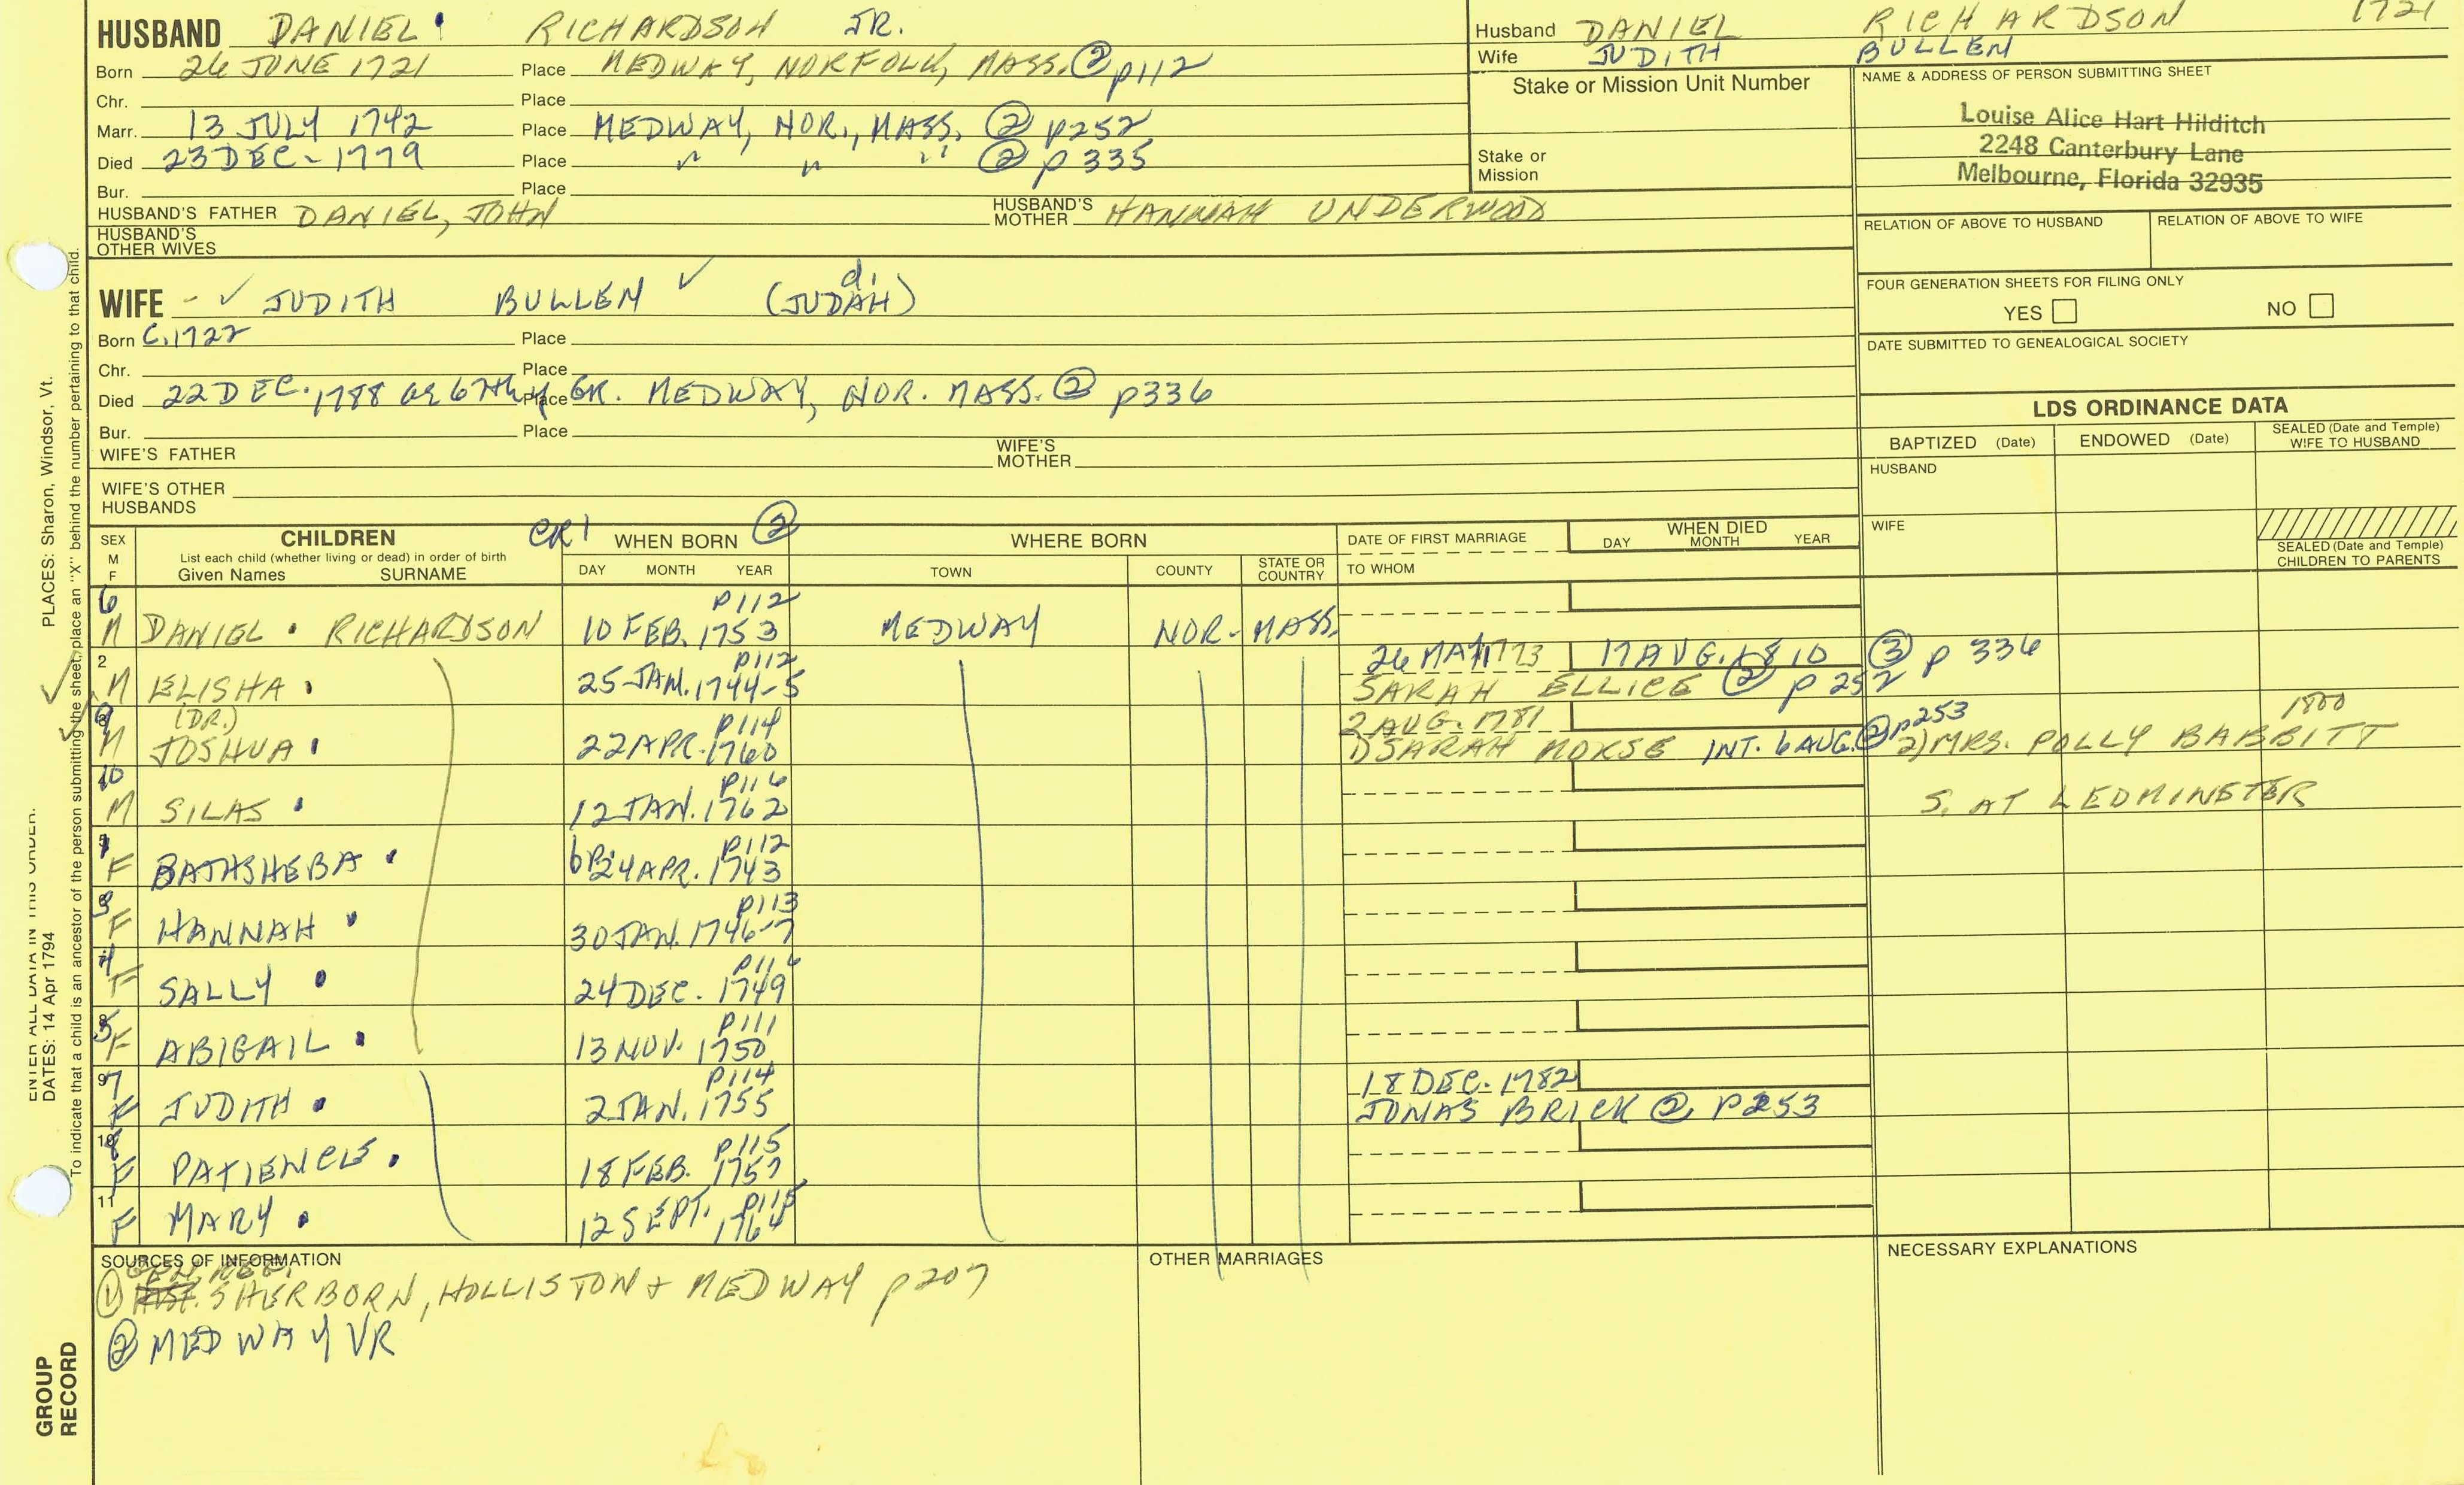 HUSBAND DANIEL RICHARDSON JR.
Born 26 JUNE 1721 Place MEDWAY, NORFOLK, MASS. ② p112
Chr. Place
Marr. 13 JULY 1742 Place MEDWAY, NOR., MASS. ② p252
Died 23 DEC - 1779 Place " " " ② p 335
Bur. Place
HUSBAND'S FATHER DANIEL, JOHN HUSBAND'S MOTHER HANNAH UNDERWOOD
HUSBAND'S OTHER WIVES
Husband DANIEL RICHARDSON 1721
Wife JUDITH BULLEN
Stake or Mission Unit Number
Stake or Mission
NAME & ADDRESS OF PERSON SUBMITTING SHEET
Louise Alice Hart Hilditch
2248 Canterbury Lane
Melbourne, Florida 32935
RELATION OF ABOVE TO HUSBAND RELATION OF ABOVE TO WIFE
FOUR GENERATION SHEETS FOR FILING ONLY
YES NO
DATE SUBMITTED TO GENEALOGICAL SOCIETY
WIFE - ✓ JUDITH BULLEN ✓ (JUDAH) di
Born C.1722 Place
Chr. Place
Died 22 DEC. 1788 Place GR. MEDWAY, NOR. MASS. ② p336
Bur. Place
WIFE'S FATHER WIFE'S MOTHER
WIFE'S OTHER HUSBANDS
LDS ORDINANCE DATA
BAPTIZED (Date) ENDOWED (Date) SEALED (Date and Temple) WIFE TO HUSBAND
HUSBAND
WIFE
SEALED (Date and Temple) CHILDREN TO PARENTS
SEX M F
CHILDREN
List each child (whether living or dead) in order of birth
Given Names SURNAME
CR1 WHEN BORN ②
DAY MONTH YEAR
WHERE BORN
TOWN COUNTY STATE OR COUNTRY
DATE OF FIRST MARRIAGE
TO WHOM
WHEN DIED
DAY MONTH YEAR
6 P112
M DANIEL RICHARDSON 10 FEB. 1753 MEDWAY NOR. MASS.
2 P112 26 MAY 1773 17 AUG. 1810 ③ p 336
M ELISHA 25 JAN. 1744-5 SARAH ELLICE ② p 252
9 (DR.) P114 2 AUG. 1781 ② p253 1800
M JOSHUA 22 APR. 1760 1) SARAH MORSE INT. 6 AUG. 2) MRS. POLLY BABBITT
10 P116
M SILAS 12 JAN. 1762 S. AT LEOMINSTER
1 P112
F BATHSHEBA bp. 24 APR. 1743
3 P113
F HANNAH 30 JAN. 1746-7
4 P116
F SALLY 24 DEC. 1749
5 P111
F ABIGAIL 13 NOV. 1750
7 P114 18 DEC. 1782
F JUDITH 2 JAN. 1755 JONAS BRICK ② P253
8 P115
F PATIENCE 18 FEB. 1757
11 P115
F MARY 12 SEPT. 1764
SOURCES OF INFORMATION
GEN. REG.
① SHERBORN, HOLLISTON + MEDWAY p207
② MEDWAY VR
OTHER MARRIAGES
NECESSARY EXPLANATIONS
PLACES: Sharon, Windsor, Vt.
ENTER ALL DATA IN THIS ORDER:
DATES: 14 Apr 1794
To indicate that a child is an ancestor of the person submitting the sheet, place an "X" behind the number pertaining to that child.
GROUP
RECORD